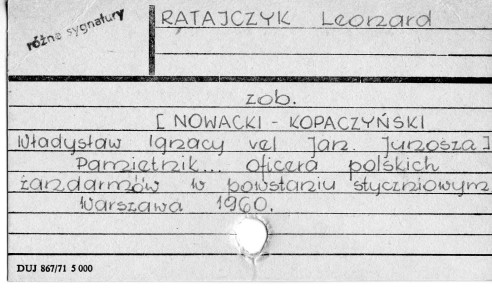 różne sygnatury
RATAJCZYK Leonard
zob.
[NOWACKI - KOPACZYŃSKI
Władysław Ignacy vel Jan. Junosza]
Pamiętnik... oficera polskich
żandarmów w powstaniu styczniowym
Warszawa 1960.
DUJ 867/71 5 000